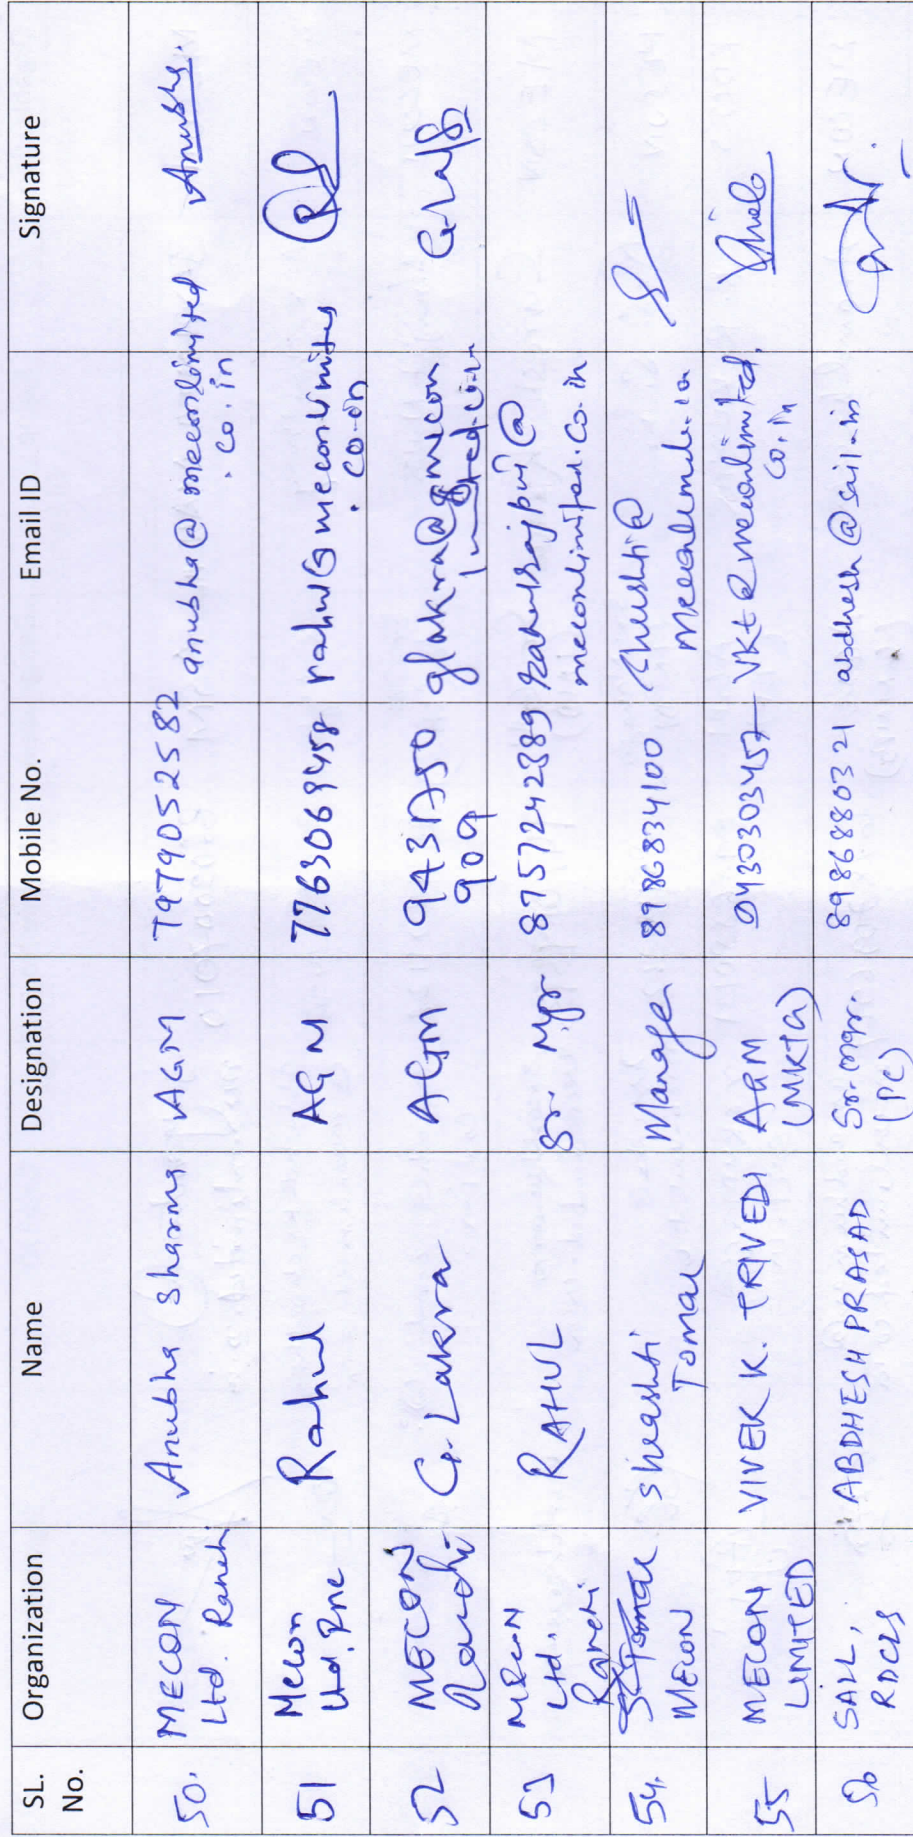 SL. No. Organization Name Designation Mobile No. Email ID Signature
50. MECON Ltd. Ranchi Anubha Sharma AGM 7979052582 anubha@meconlimited.co.in Anubha.
51 Mecon Ltd. Rnc Rahul AGM 7763069458 rahul@meconlimited.co.in
52 MECON Ranchi G. Lakra AGM 909 glakra@mecon limited.co.in
53 Mecon Ltd. Ranchi RAHUL Sr. Mgr 8757242889 meconlimited.co.in
54. MECON Shrashti Tomar Manager 8986834100
55 MECON LIMITED VIVEK K. TRIVEDI AGM (MKTG) vkt@meconlimited.co.in
56 SAIL, RDCIS ABDHESH PRASAD Sr. Mgr. (PC) 8986880321 abdhesh@sail.in